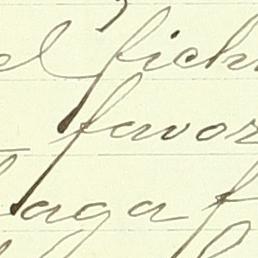 el fich
favor
haga f